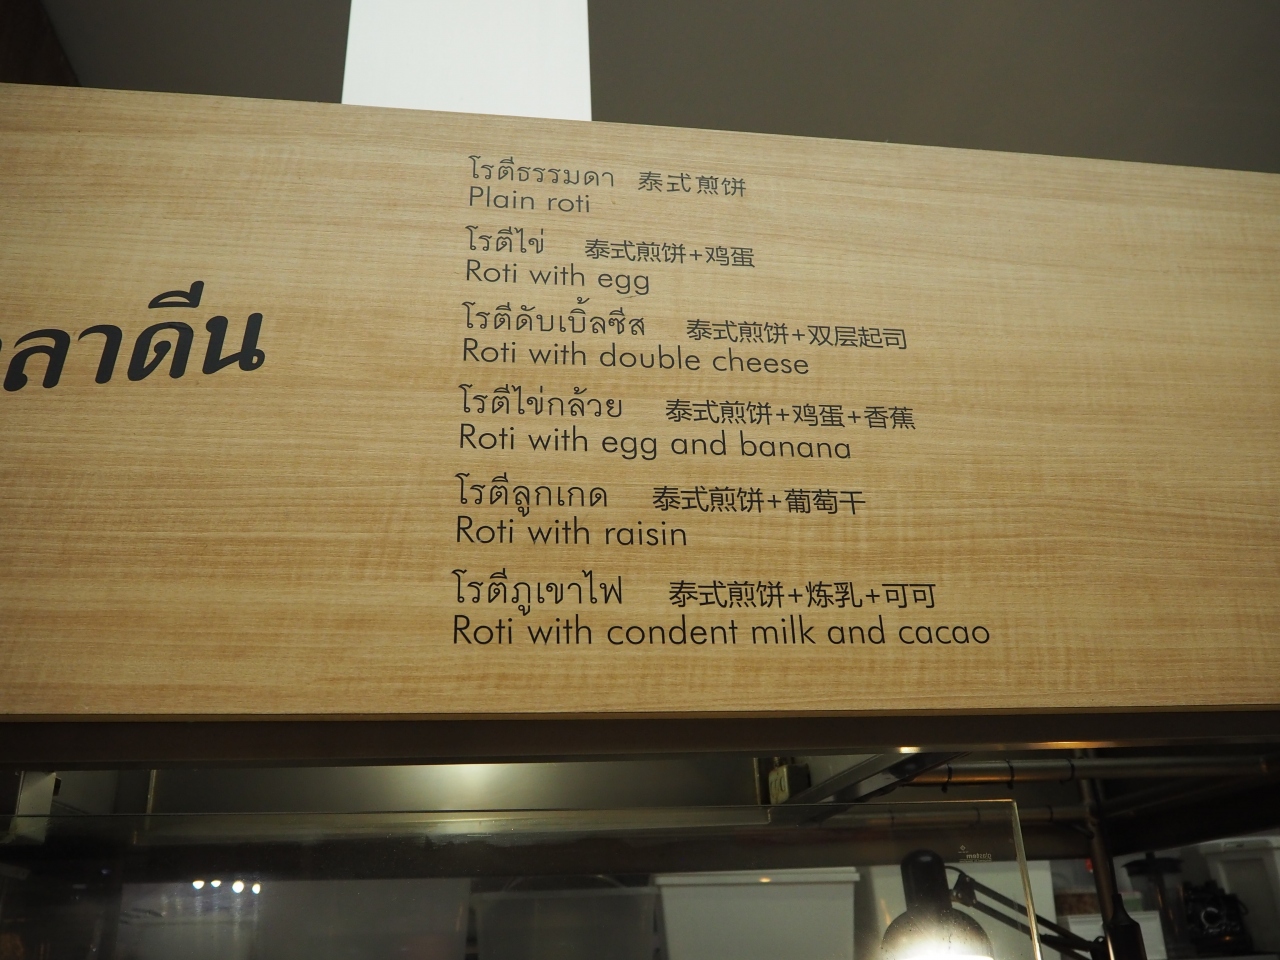 ลาดีน
โรตีธรรมดา 泰式煎饼
Plain roti
โรตีไข่ 泰式煎饼+鸡蛋
Roti with egg
โรตีดับเบิ้ลซีส 泰式煎饼+双层起司
Roti with double cheese
โรตีไข่กล้วย 泰式煎饼+鸡蛋+香蕉
Roti with egg and banana
โรตีลูกเกด 泰式煎饼+葡萄干
Roti with raisin
โรตีภูเขาไฟ 泰式煎饼+炼乳+可可
Roti with condent milk and cacao